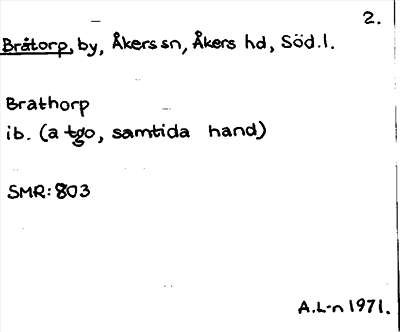 2.
Bråtorp, by, Åkers sn, Åkers hd, Söd.l.
Brathorp
ib. (a tgo, samtida hand)
SMR: 803
A.L-n 1971.